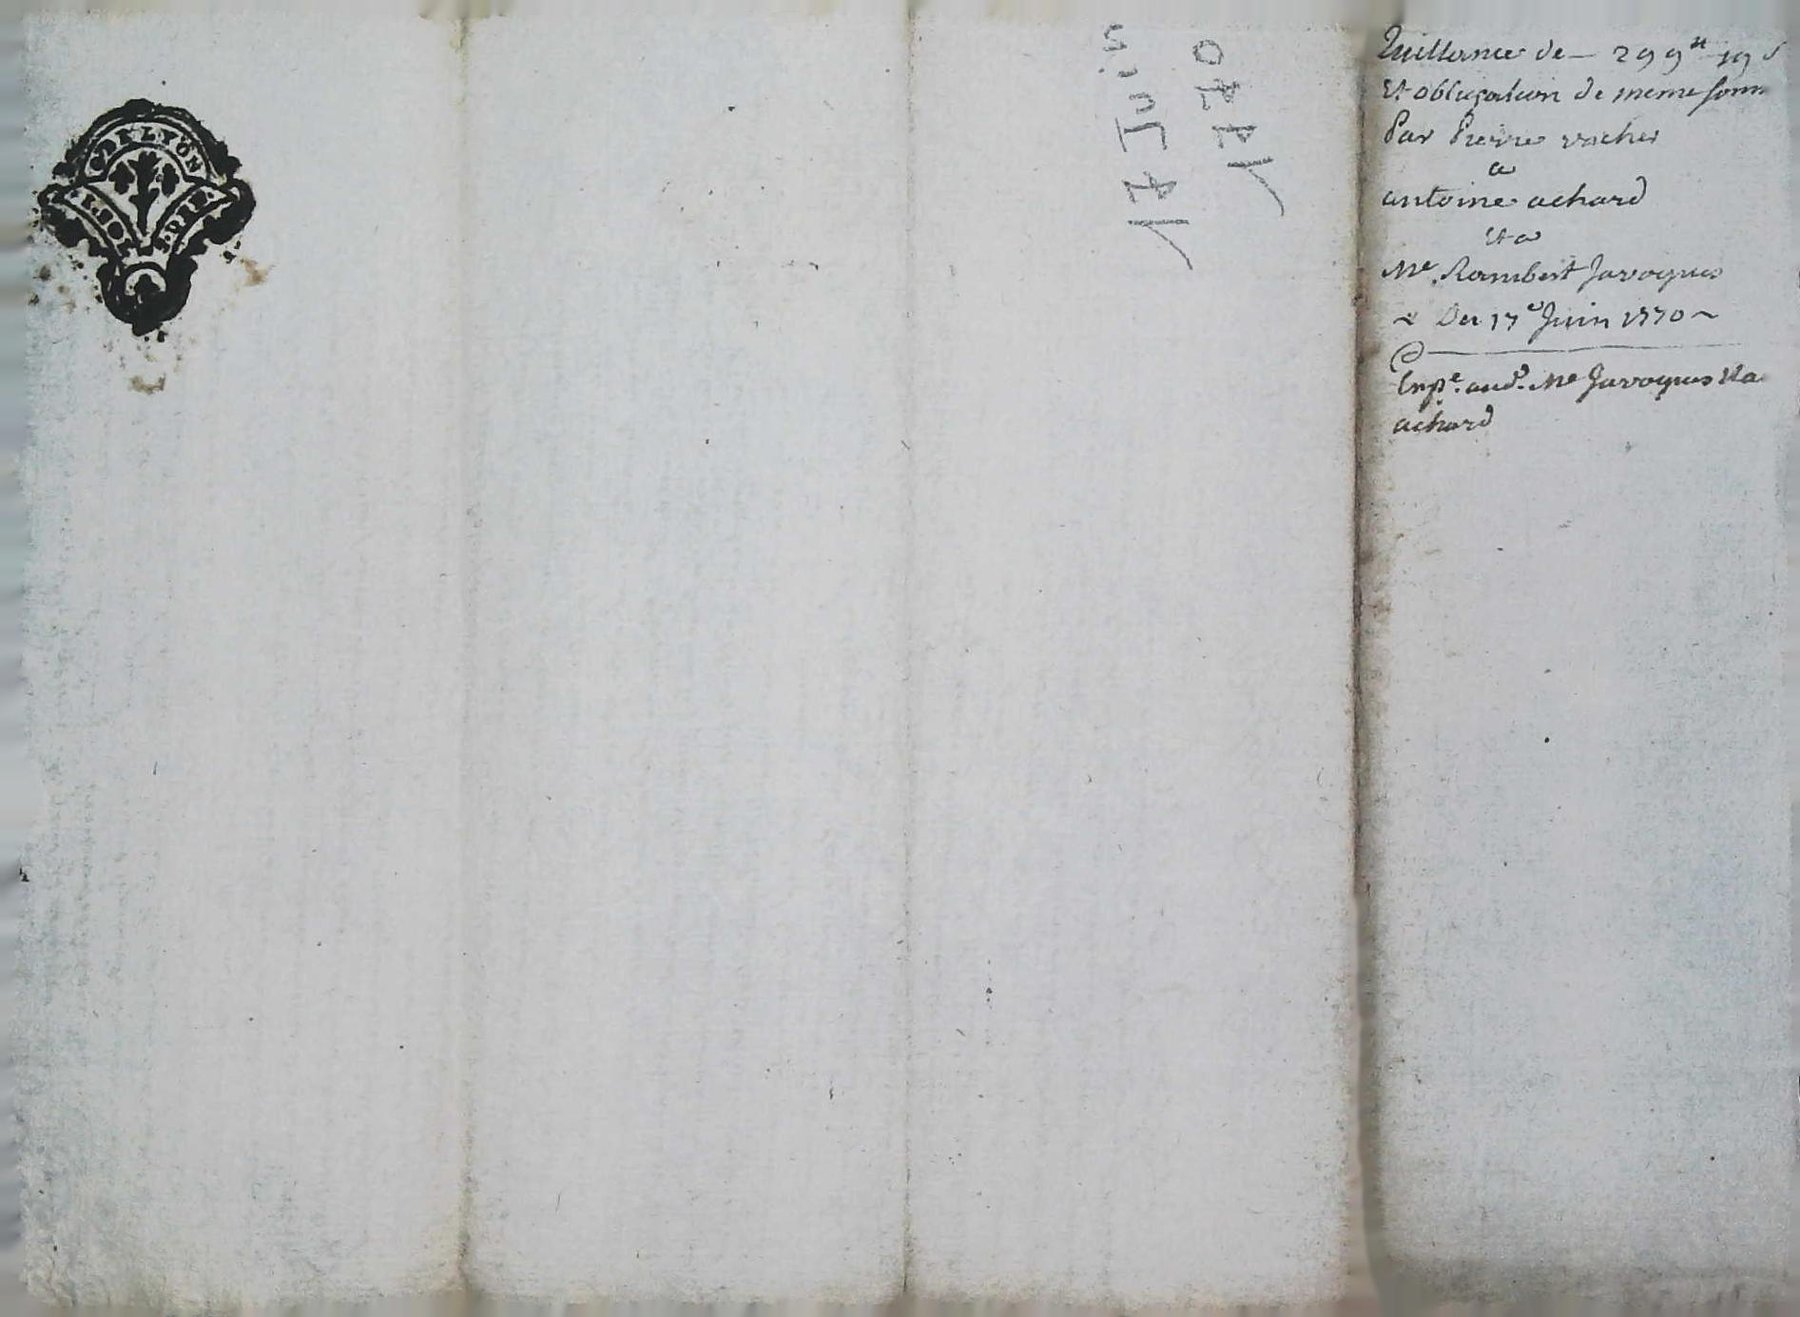 G. DE LYON
17 Juin
1770
Quittance de — 299 ₶ 19 s
Et obligation de meme somm
Par Pierre vacher
a
antoine achard
Et a
Me. Rambert Javogues
~ Du 17e Juin 1770 ~
Expe. aud. Me Javogues Et a
achard